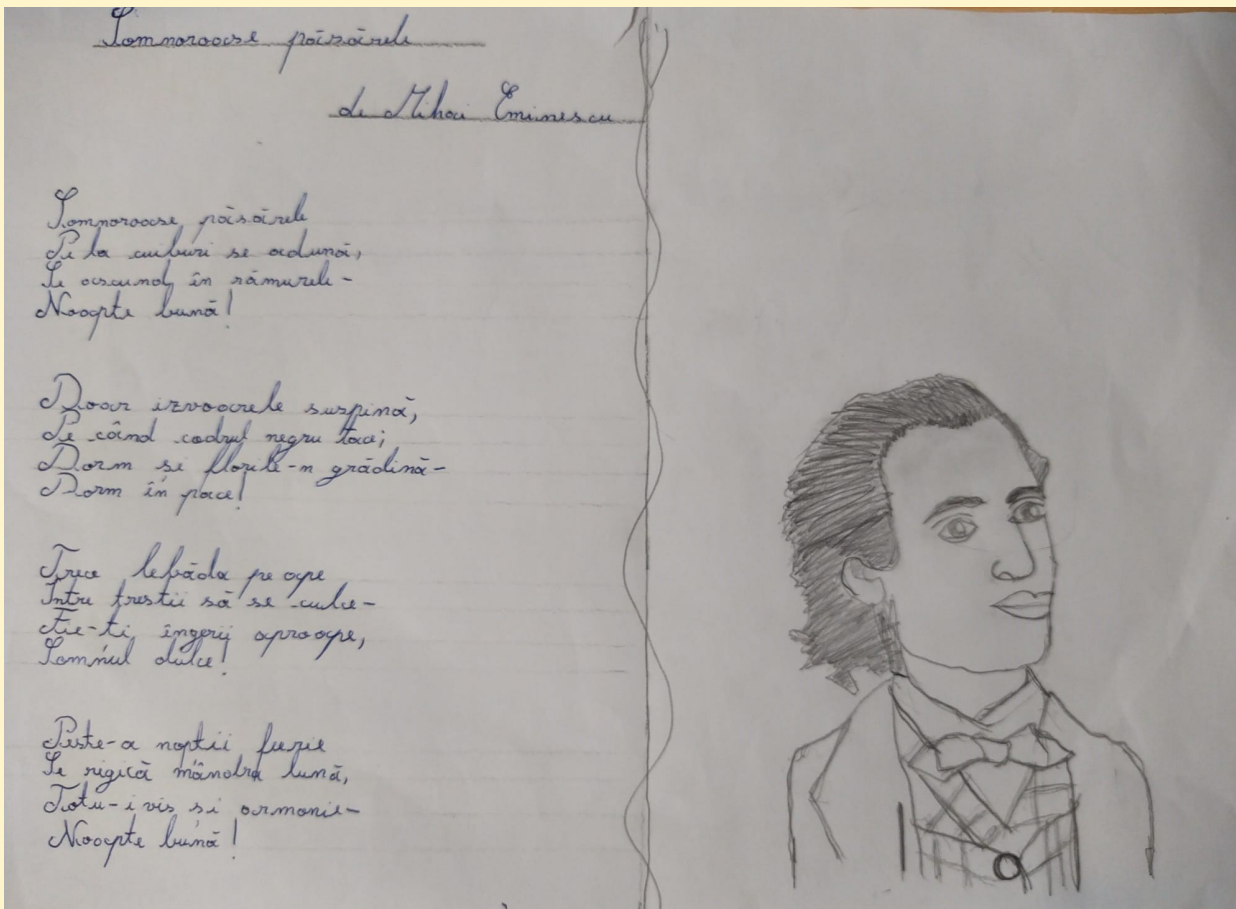 Somnoroase păsărele
de Mihai Eminescu
Somnoroase păsărele
Pe la cuiburi se adună,
Se ascund în rămurele-
Noapte bună!
Doar izvoarele suspină,
Pe când codrul negru tace;
Dorm și florile-n grădină-
Dorm în pace!
Trece lebăda pe ape
Între trestii să se culce-
Fie-ți îngerii aproape,
Somnul dulce!
Peste-a nopții feerie
Se rigică mândra lună,
Totu-i vis și armonie-
Noapte bună!